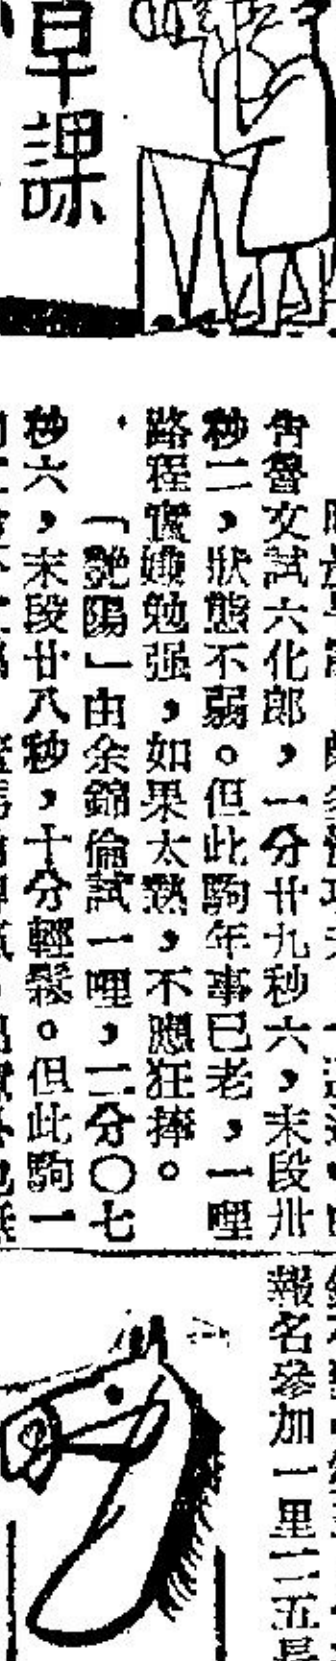 早課
告魯文試六化郎，一分廿九秒六，末段卅
秒二，狀態不弱。但此駒年事已老，一哩
路程實嫌勉强，如果太熱，不應狂捧。
「艷陽」由余錦倫試一哩，二分〇七
秒六，末段廿八秒，十分輕鬆。但此駒一
報名參加一里一二五長